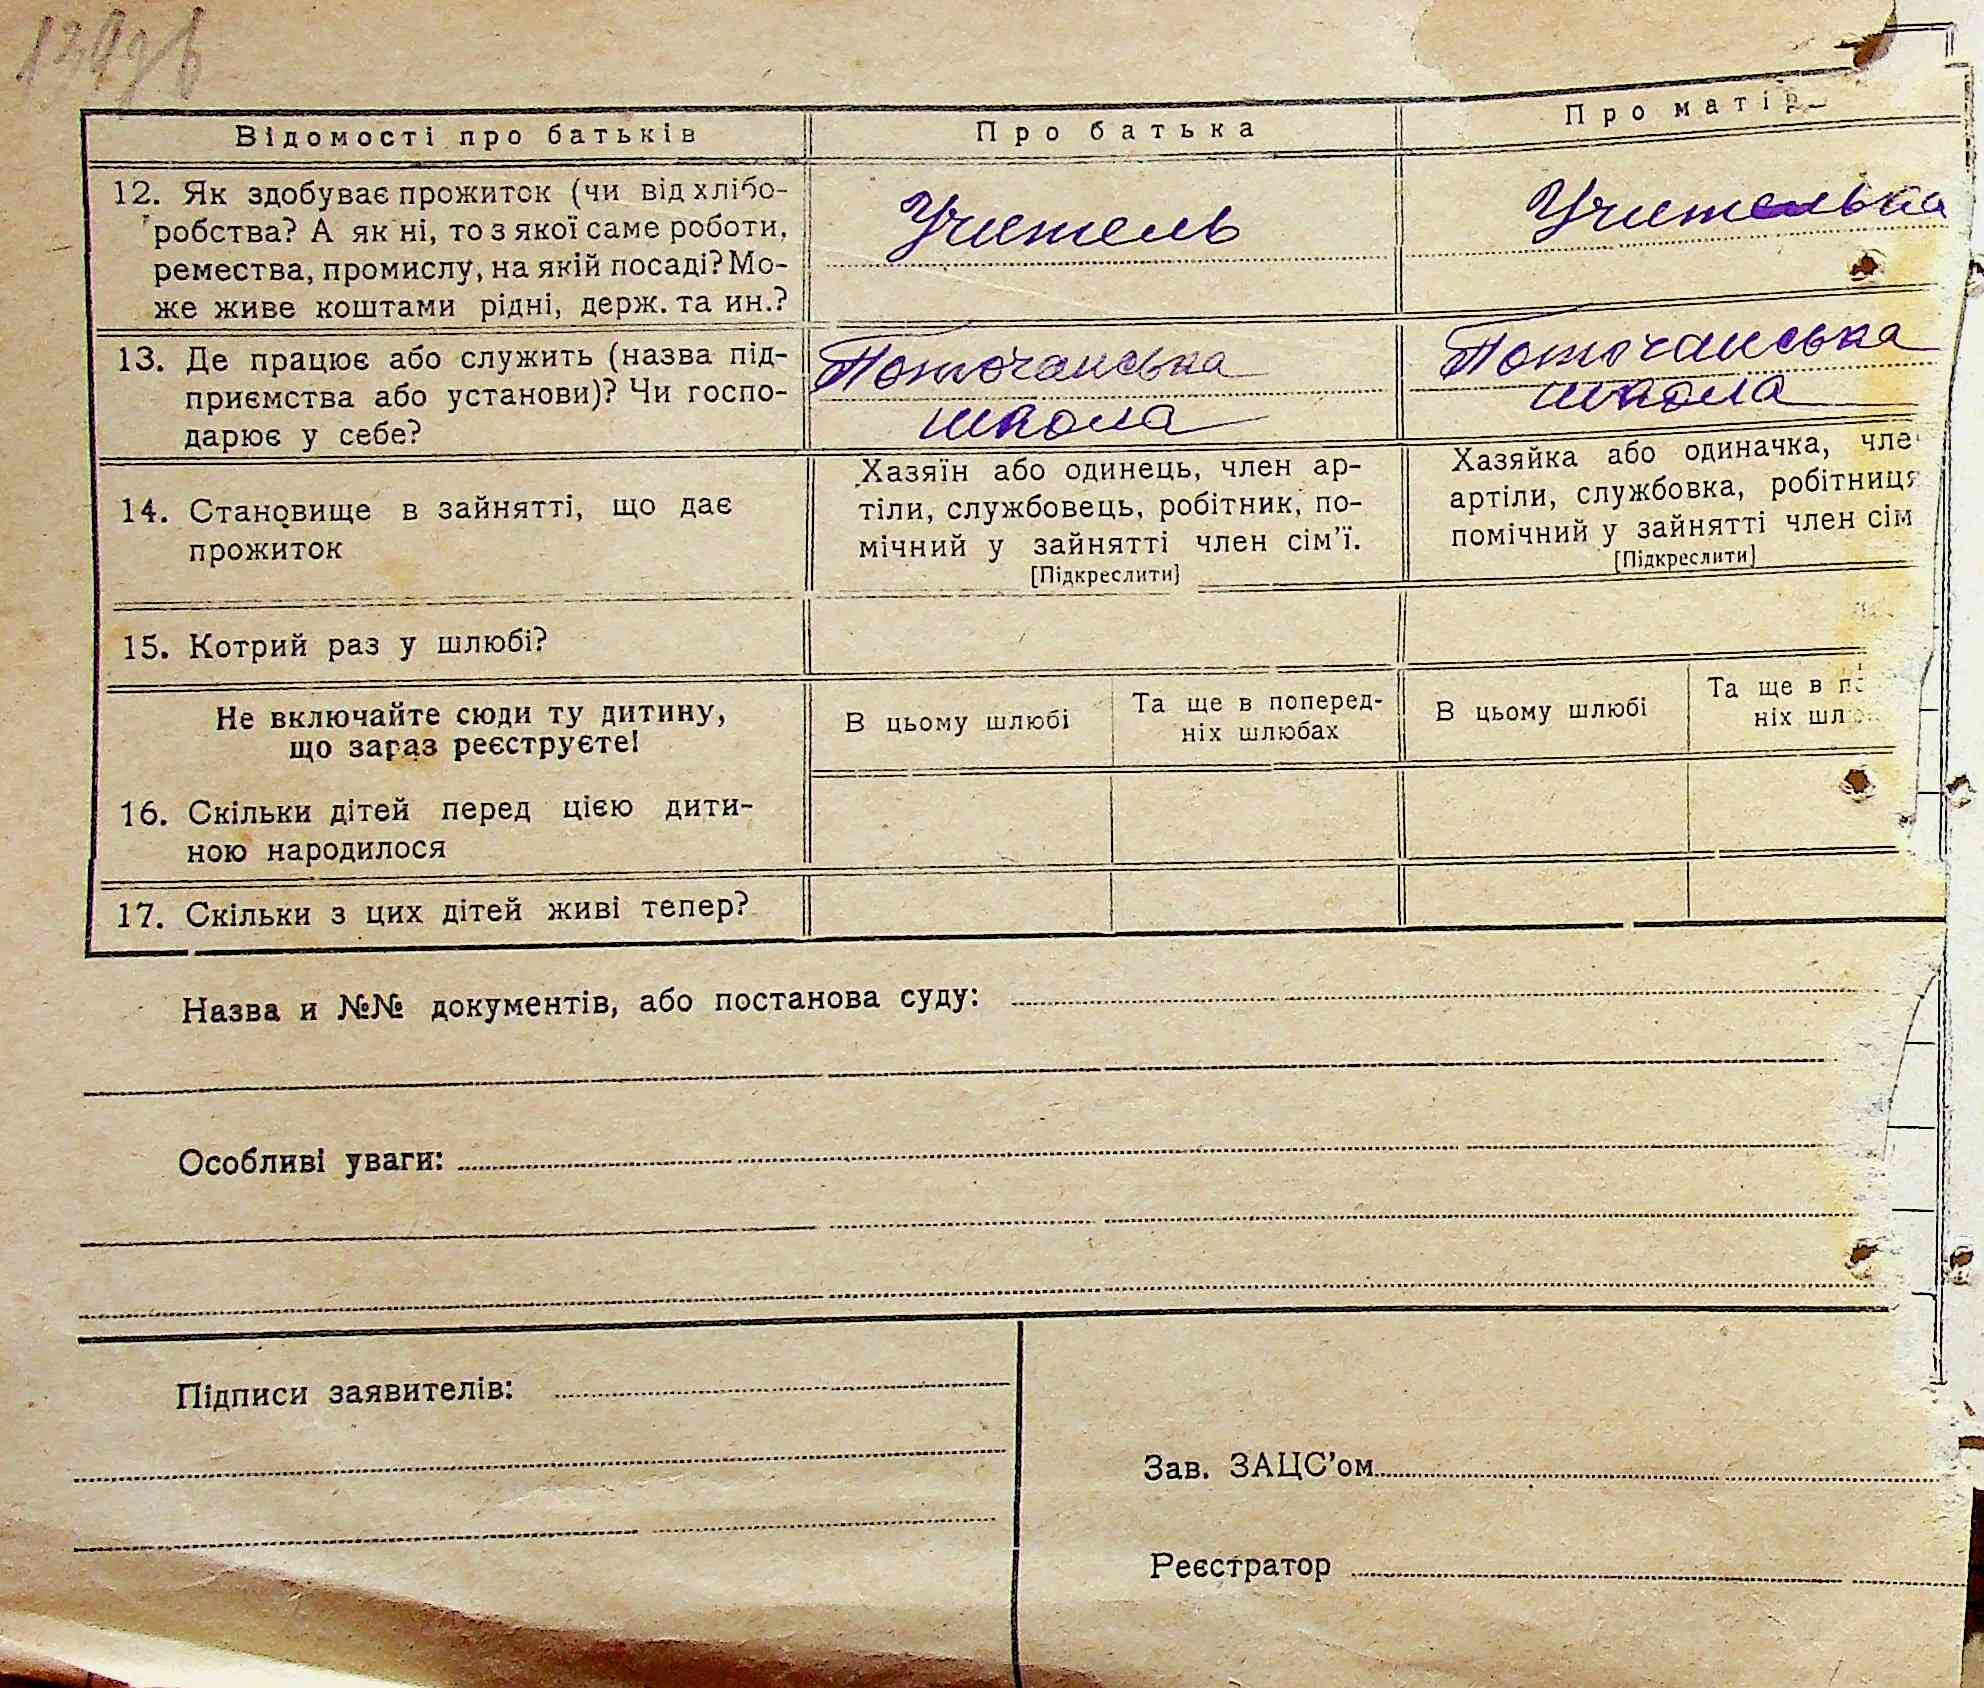 Відомості про батьків
Про батька
Про матір
12. Як здобуває прожиток (чи від хлібо-
робства? А як ні, то з якої саме роботи,
ремества, промислу, на якій посаді? Мо-
же живе коштами рідні, держ. та ин.?
Учитель
Учителька
13. Де працює або служить (назва під-
приємства або установи)? Чи госпо-
дарює у себе?
Поточанська
школа
Поточанська
школа
14. Становище в зайнятті, що дає
прожиток
Хазяїн або одинець, член ар-
тіли, службовець, робітник, по-
мічний у зайнятті член сім’ї.
[Підкреслити]
Хазяйка або одиначка, чле
артіли, службовка, робітниця
помічний у зайнятті член сім
[Підкреслити]
15. Котрий раз у шлюбі?
Не включайте сюди ту дитину,
що зараз реєструєте!
В цьому шлюбі
Та ще в поперед-
ніх шлюбах
В цьому шлюбі
Та ще в по
ніх шлю
16. Скільки дітей перед цією дити-
ною народилося
17. Скільки з цих дітей живі тепер?
Назва и №№ документів, або постанова суду:
Особливі уваги:
Підписи заявителів:
Зав. ЗАЦС’ом
Реєстратор